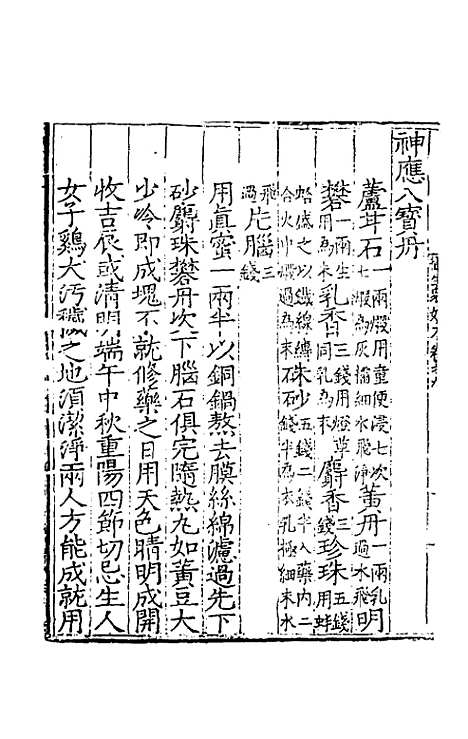 神應八寳丹
蘆甘石一兩煆用童便浸七次七煆為灰擂細水飛淨黄丹一兩乳過水飛明
礬一兩生用為末乳香三錢用燈草同乳為末麝香三錢珍珠五錢用蚌
蛤盛之以鐵線縛合火中煆過為末硃砂五錢二錢半入藥内二石砂錢半為衣乳極細末水
飛過片腦三錢
用真蜜一兩半以銅鍋熬去膜絲綿濾過先下
砂麝珠礬丹次下腦石俱完隨熱丸如黄豆大
少冷即成塊不就修藥之日用天色晴明成開
收吉辰或清明端午中秋重陽四節切忌生人
女子鷄犬污穢之地須潔淨兩人方能成就用